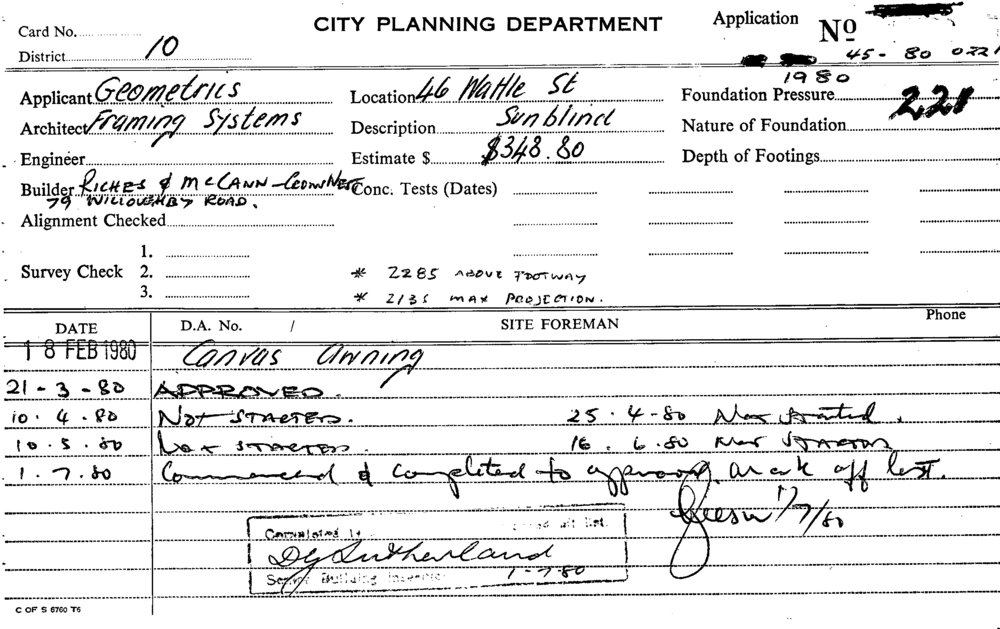 CITY PLANNING DEPARTMENT
Application No
Card No.
District 10
45-80 0221
1980
Applicant Geometrics
Location 46 Wattle St
Foundation Pressure
221
Architect Framing Systems
Description Sunblind
Nature of Foundation
Engineer
Estimate $ $348.80
Depth of Footings
Builder RICHES & McCANN - CROWNEST
79 WILLOUGHBY ROAD.
Conc. Tests (Dates)
Alignment Checked
1.
Survey Check 2.
3.
* 2285 ABOVE FOOTWAY
* 2135 MAX PROJECTION.
DATE D.A. No. / SITE FOREMAN Phone
18 FEB 1980 Canvas Awning
21-3-80 APPROVED.
10.4.80 NOT STARTED. 25.4-80 Not started.
10.5.80 NOT STARTED. 16.6.80 NOT STARTED
1.7.80 Commenced & completed to approval. Mark off list.
1/7/80
Completed
off list.
DG Sutherland
Senior Building Inspector 1-7-80
C OF S 6760 T6